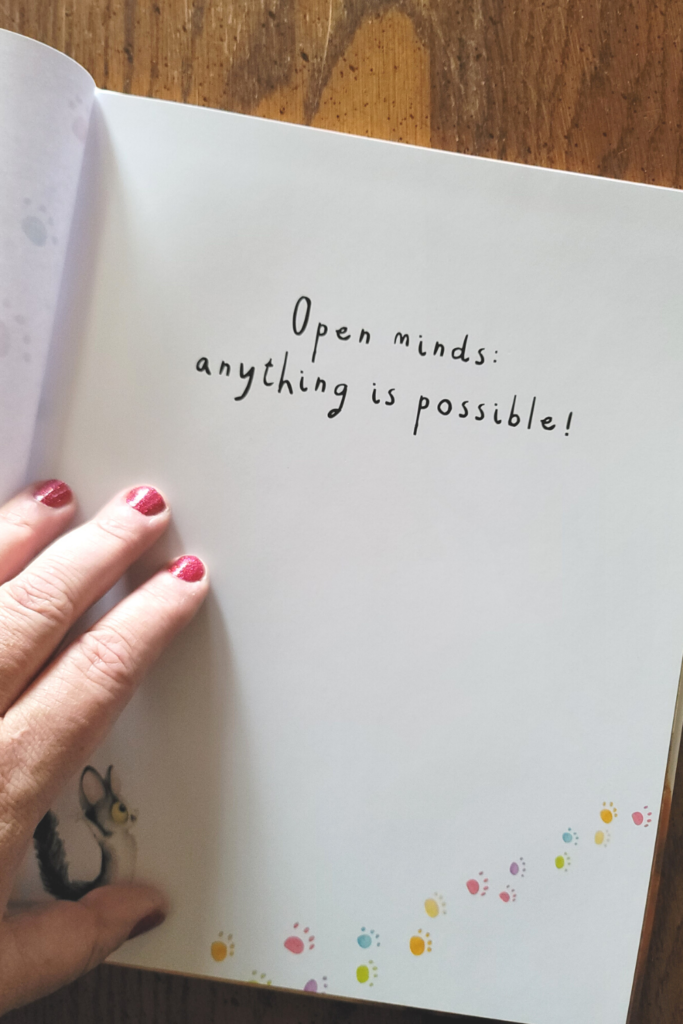 Open minds:
anything is possible!